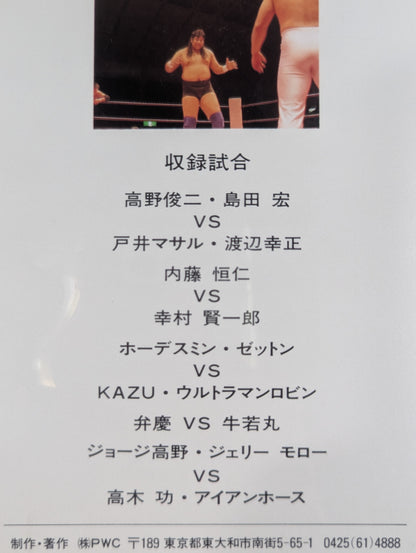 収録試合
高野俊二・島田 宏
VS
戸井マサル・渡辺幸正
内藤 恒仁
VS
幸村 賢一郎
ホーデスミン・ゼットン
VS
KAZU・ウルトラマンロビン
弁慶 VS 牛若丸
ジョージ高野・ジェリー モロー
VS
高木 功・アイアンホース
制作・著作 ㈱PWC 〒189 東京都東大和市南街5-65-1 0425(61)4888